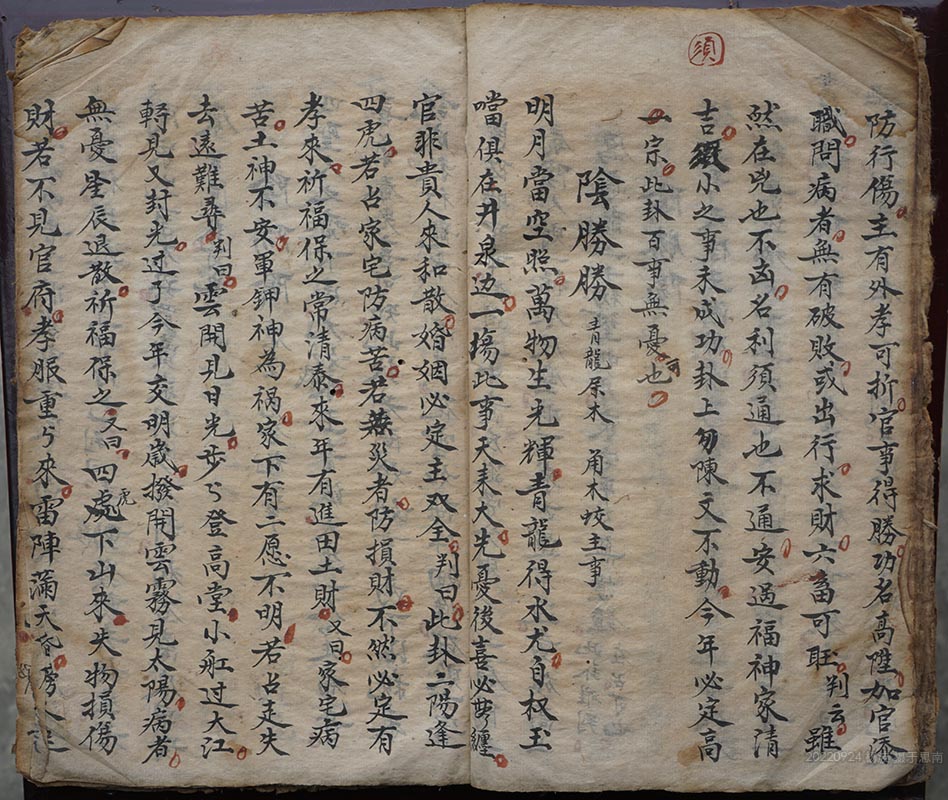 須
防行傷主有外孝可折官事得勝功名高陞如官添
職問病者無有破敗或出行求財六畜可旺判云雖
然在兇也不凶名利須通也不通安過福神家清
吉須小之事未成功卦上勿陳文不動今年必定高
一宗此卦百事無憂也
陰勝勝 青龍屬木 角木蛟主事
明月當空照萬物生光輝青龍得水尤自权玉
噹俱在井泉边一塲此事天来大先憂後喜必纏
官非貴人來和散婚姻必定主双全判曰此卦二陽逢
四虎若占家宅防病苦若無災者防損財不然必定有
孝來祈福保之常清泰來年有進田土財又曰家宅病
苦土神不安軍鉀神為禍家下有二愿不明若占走失
去遠難尋判曰雲開見日光步々登高堂小舡过大江
輕見又封光过了今年交明歲撥開雲霧見太陽病者
無憂星辰退散祈福保之又曰四處虎下山來失物損傷
財若不見官府孝服重々來雷陣滿天
20220924 思南